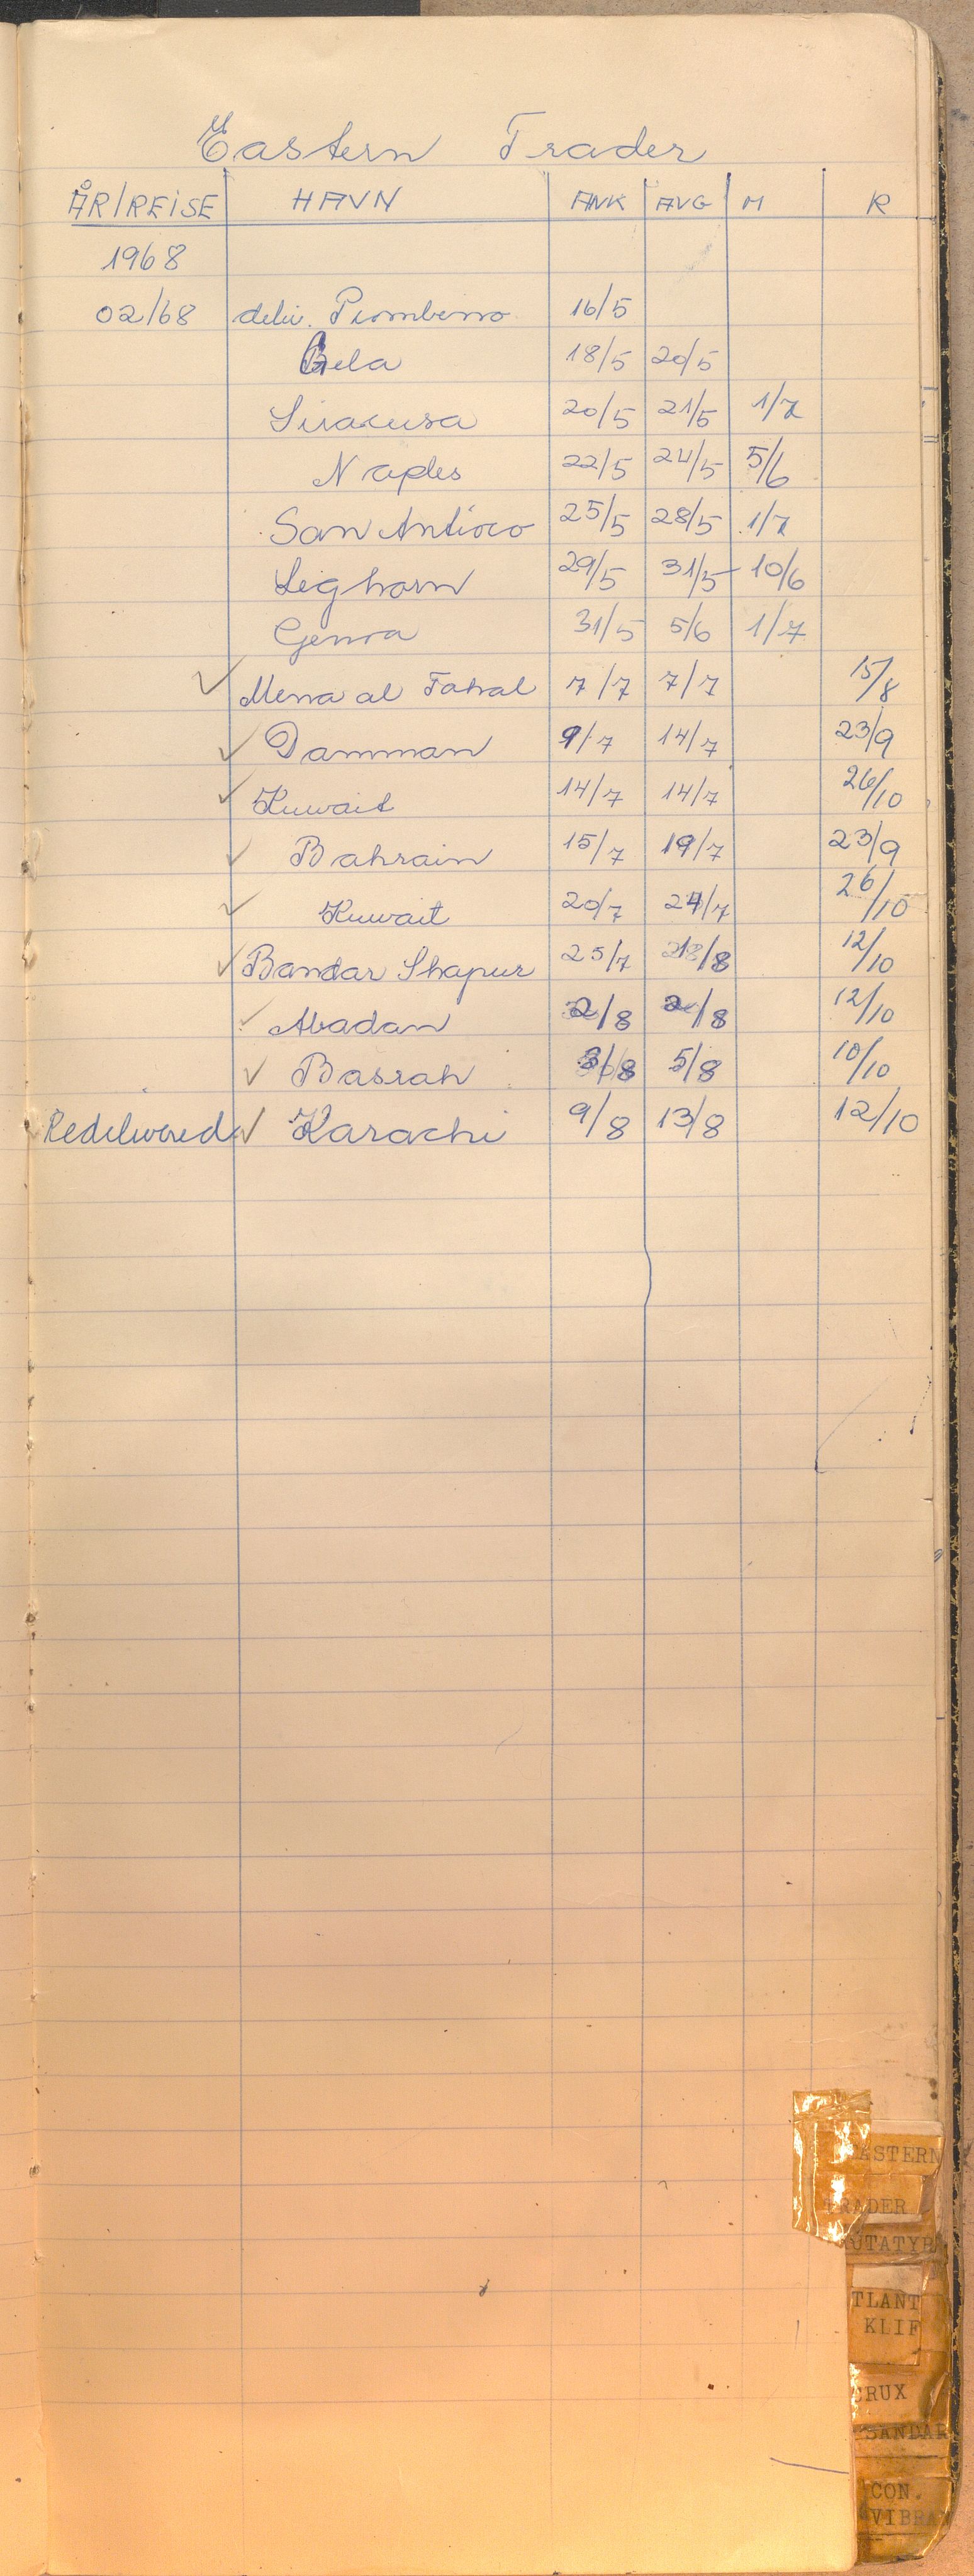 Eastern Trader
ÅR/REISE HAVN ANK AVG M R
1968
02/68 deliv. Piombino 16/5
Gela 18/5 20/5
Siracusa 20/5 21/5 1/7
Naples 22/5 24/5 5/6
San Antioco 25/5 28/5 1/7
Leghorn 29/5 31/5 10/6
Genoa 31/5 5/6 1/7
✓ Mena al Fahal 7/7 7/7 15/8
✓ Damman 9/7 14/7 23/9
✓ Kuwait 14/7 14/7 26/10
✓ Bahrain 15/7 19/7 23/9
✓ Kuwait 20/7 24/7 26/10
✓ Bandar Shapur 25/7 12/10
✓ Abadan 2/8 2/8 12/10
✓ Basrah 3/8 5/8 10/10
Redelivered ✓ Karachi 9/8 13/8 12/10
EASTERN
TRADER
UTATYB
TLANT
KLIF
CRUX
SANDAR
CON.
VIBRA